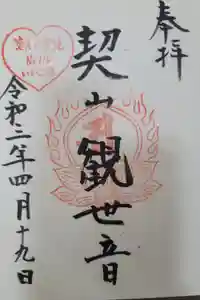 奉拝
契山観世音
令和二年四月十九日